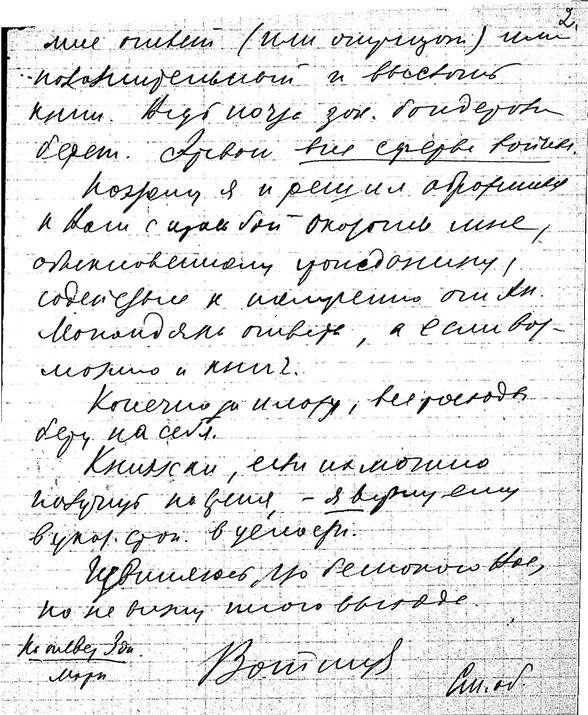 2.
мне ответ (или отрицат.) или
положительный и выслать
книги. Ведь почта зак. бандероли
берет. Ереван вне сферы войны.
Поэтому я и решил обратиться
к Вам с просьбой оказать мне,
обыкновенному гражданину,
содействие к получению от Ак.
ответа, а если воз-
можно и книг.
Конечно за плату, все расходы
беру на себя.
Книжки, если их можно
получить на время, - я верну ему
в целости.
Извиняюсь, что беспокою Вас,
но не вижу иного выхода.
На ответ
марки
См. об.